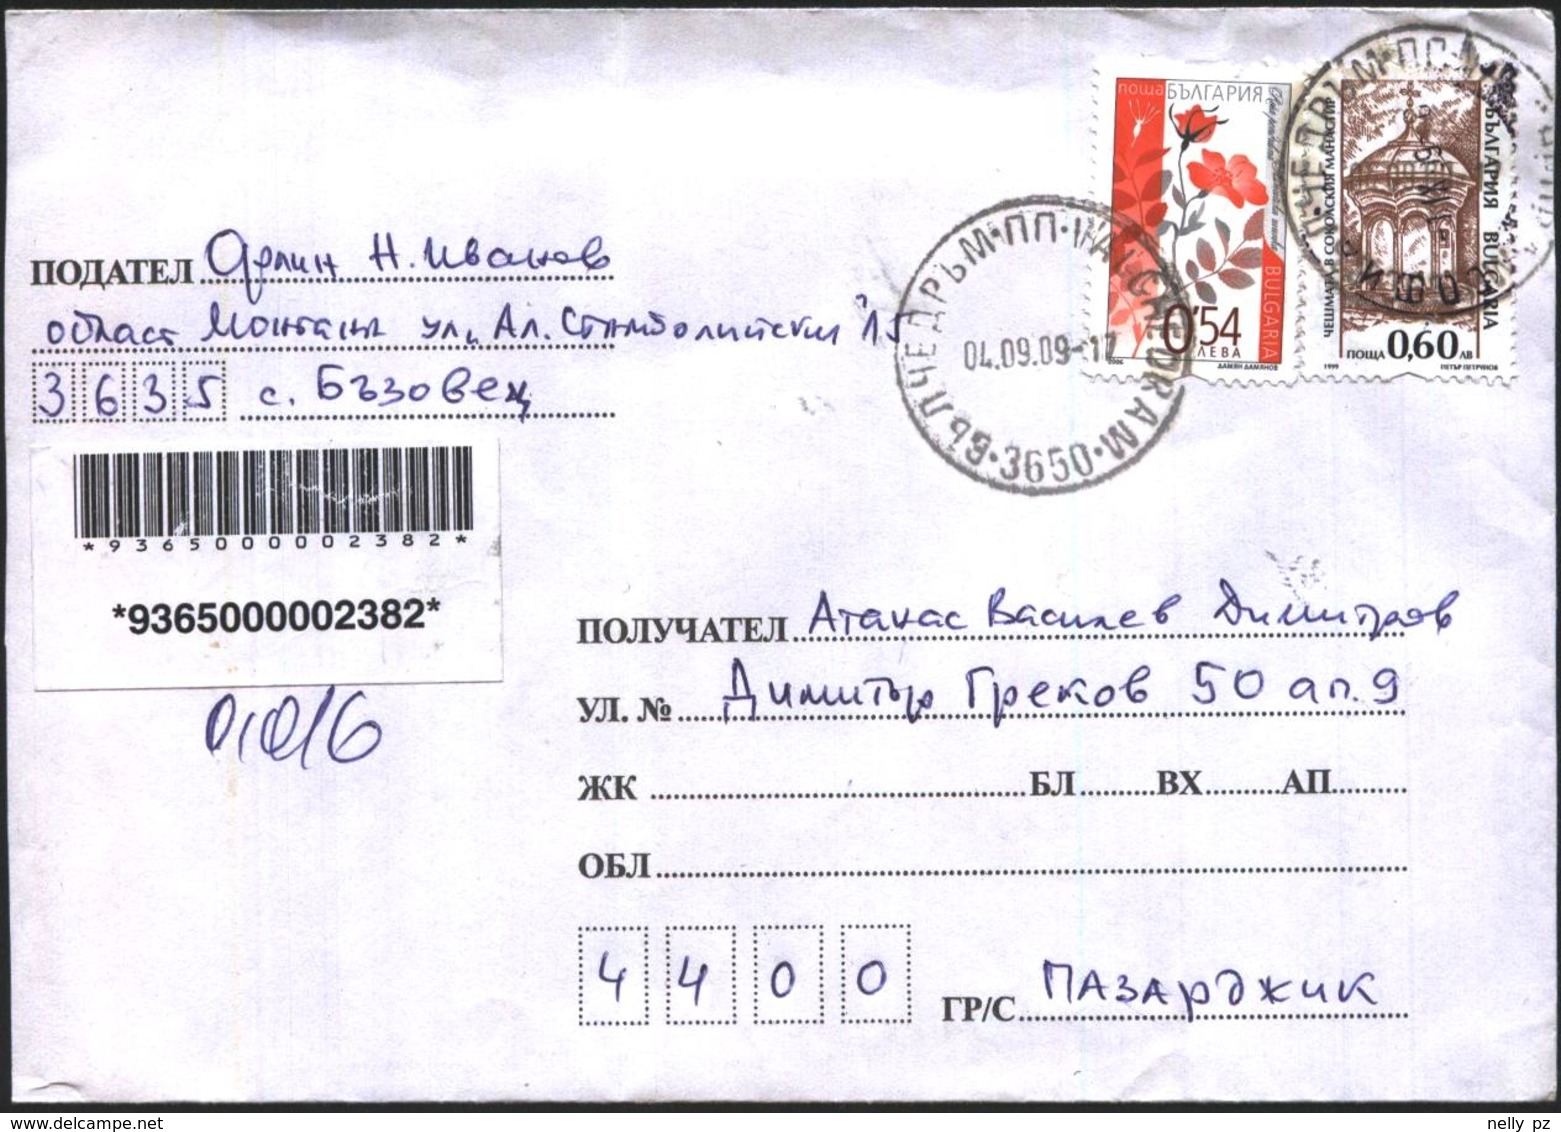 ПОДАТЕЛ Орлин Н. Иванов
област Монтана ул. Ал. Стамболийски 15
3635 с. Бъзовец
*9365000002382*
*9365000002382*
поща БЪЛГАРИЯ
BULGARIA
0,54
ЛЕВА
2006 ДАМЯН ДАМЯНОВ
ЧЕШМАТА В СОКОЛСКИЯ МАНАСТИР
БЪЛГАРИЯ BULGARIA
ПОЩА 0,60 ЛВ
1999 ПЕТЪР ПЕТРУНОВ
04.09.09-17
3650
ПОЛУЧАТЕЛ Атанас Василев Димитров
УЛ. № Димитър Греков 50 ап. 9
ЖК БЛ ВХ АП
ОБЛ
4400 ГР/С ПАЗАРДЖИК
nelly pz